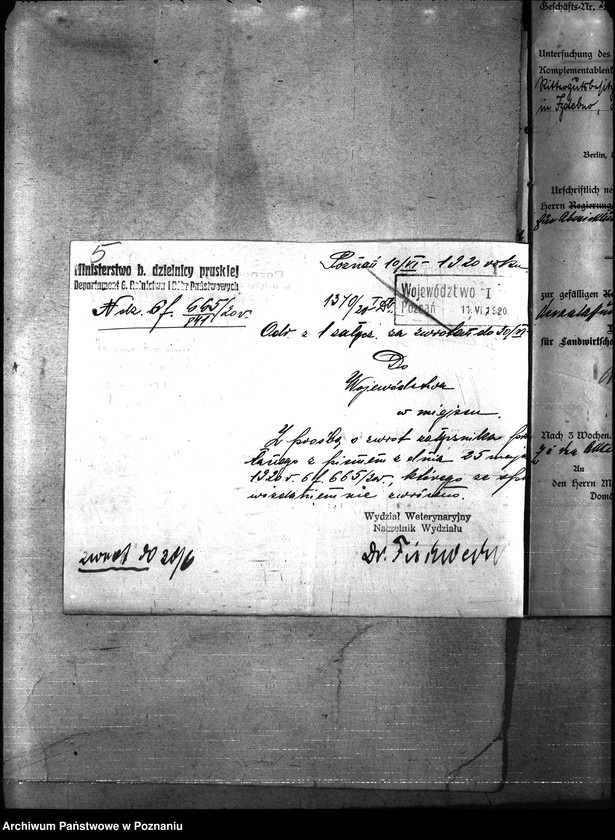 5
Ministerstwo b. dzielnicy pruskiej
Departament G. Rolnictwa i Dóbr Państwowych.
N dz. 6 f. 665/20 r.
Poznań 10/VI - 1920 roku
1370/20
Województwo I
Poznań 11.VI.1920
Odr. z 1 załącz. za zwrotem do 30/VI
Do
Województwa
w miejscu.
Z prośbą o zwrot załącznika
z pismem z dnia 25 maja
1920 r. 6 f 665/20 r., którego ze
nie zwrócono.
Wydział Weterynaryjny
Naczelnik Wydziału
Dr.
zwrot do 28/6
Geschäfts-Nr.
Untersuchung des
Rittergutsbesitz
in Izdebno,
Berlin, d
Urschriftlich ne
Herrn Regierung
zur gefälligen
für Landwirtscha
Nach 3 Wochen.
An
den Herrn M
Domä
Archiwum Państwowe w Poznaniu